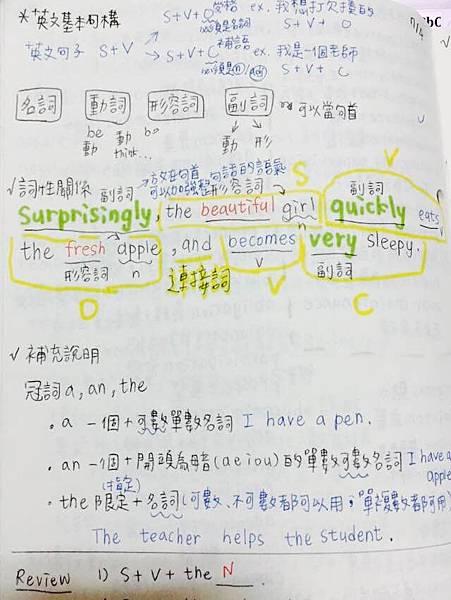 *英文基本句構
S+V+O 受格 ex. 我想打欠揍的
必須是名詞 S + V + O
英文句子 S+V
S+V+C 補語 ex. 我是一個老師
必須是(n)/(adj) S + V + C
名詞 動詞 形容詞 副詞 可以當句首
be 動 動 think... 動 形
√詞性關係 副詞 放在句首可以加強整句話的語氣 形容詞 S 副詞 V
Surprisingly, the beautiful girl quickly eats
n
the fresh apple, and becomes very sleepy.
形容詞 n 連接詞 v 副詞
O V C
√補充說明
冠詞 a, an, the
. a 一個+可數單數名詞 I have a pen.
. an 一個+開頭為母音(a e i o u)的單數可數名詞 I have a
apple
(指定)
. the 限定+名詞(可數、不可數都可以用,單複數都可用)
The teacher helps the student.
Review 1) S+V+the N.
7/4